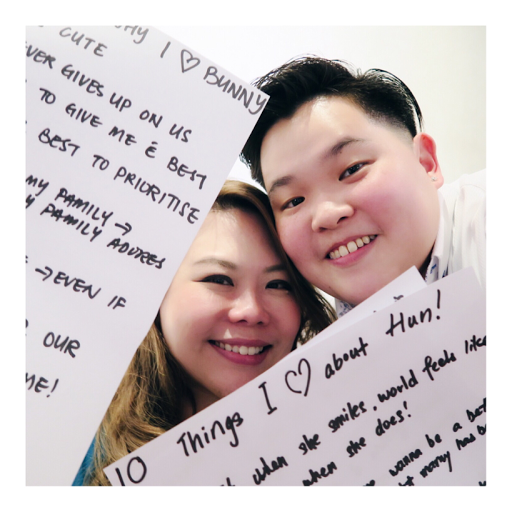 I ♡ BUNNY
CUTE
EVER GIVES UP ON US
TO GIVE ME & BEST
BEST TO PRIORITISE
MY FAMILY →
FAMILY ADORES
→ EVEN IF
OUR
ME!
10 Things I ♡ about Hun!
when she smiles, world feels like
when she does!
wanna be a